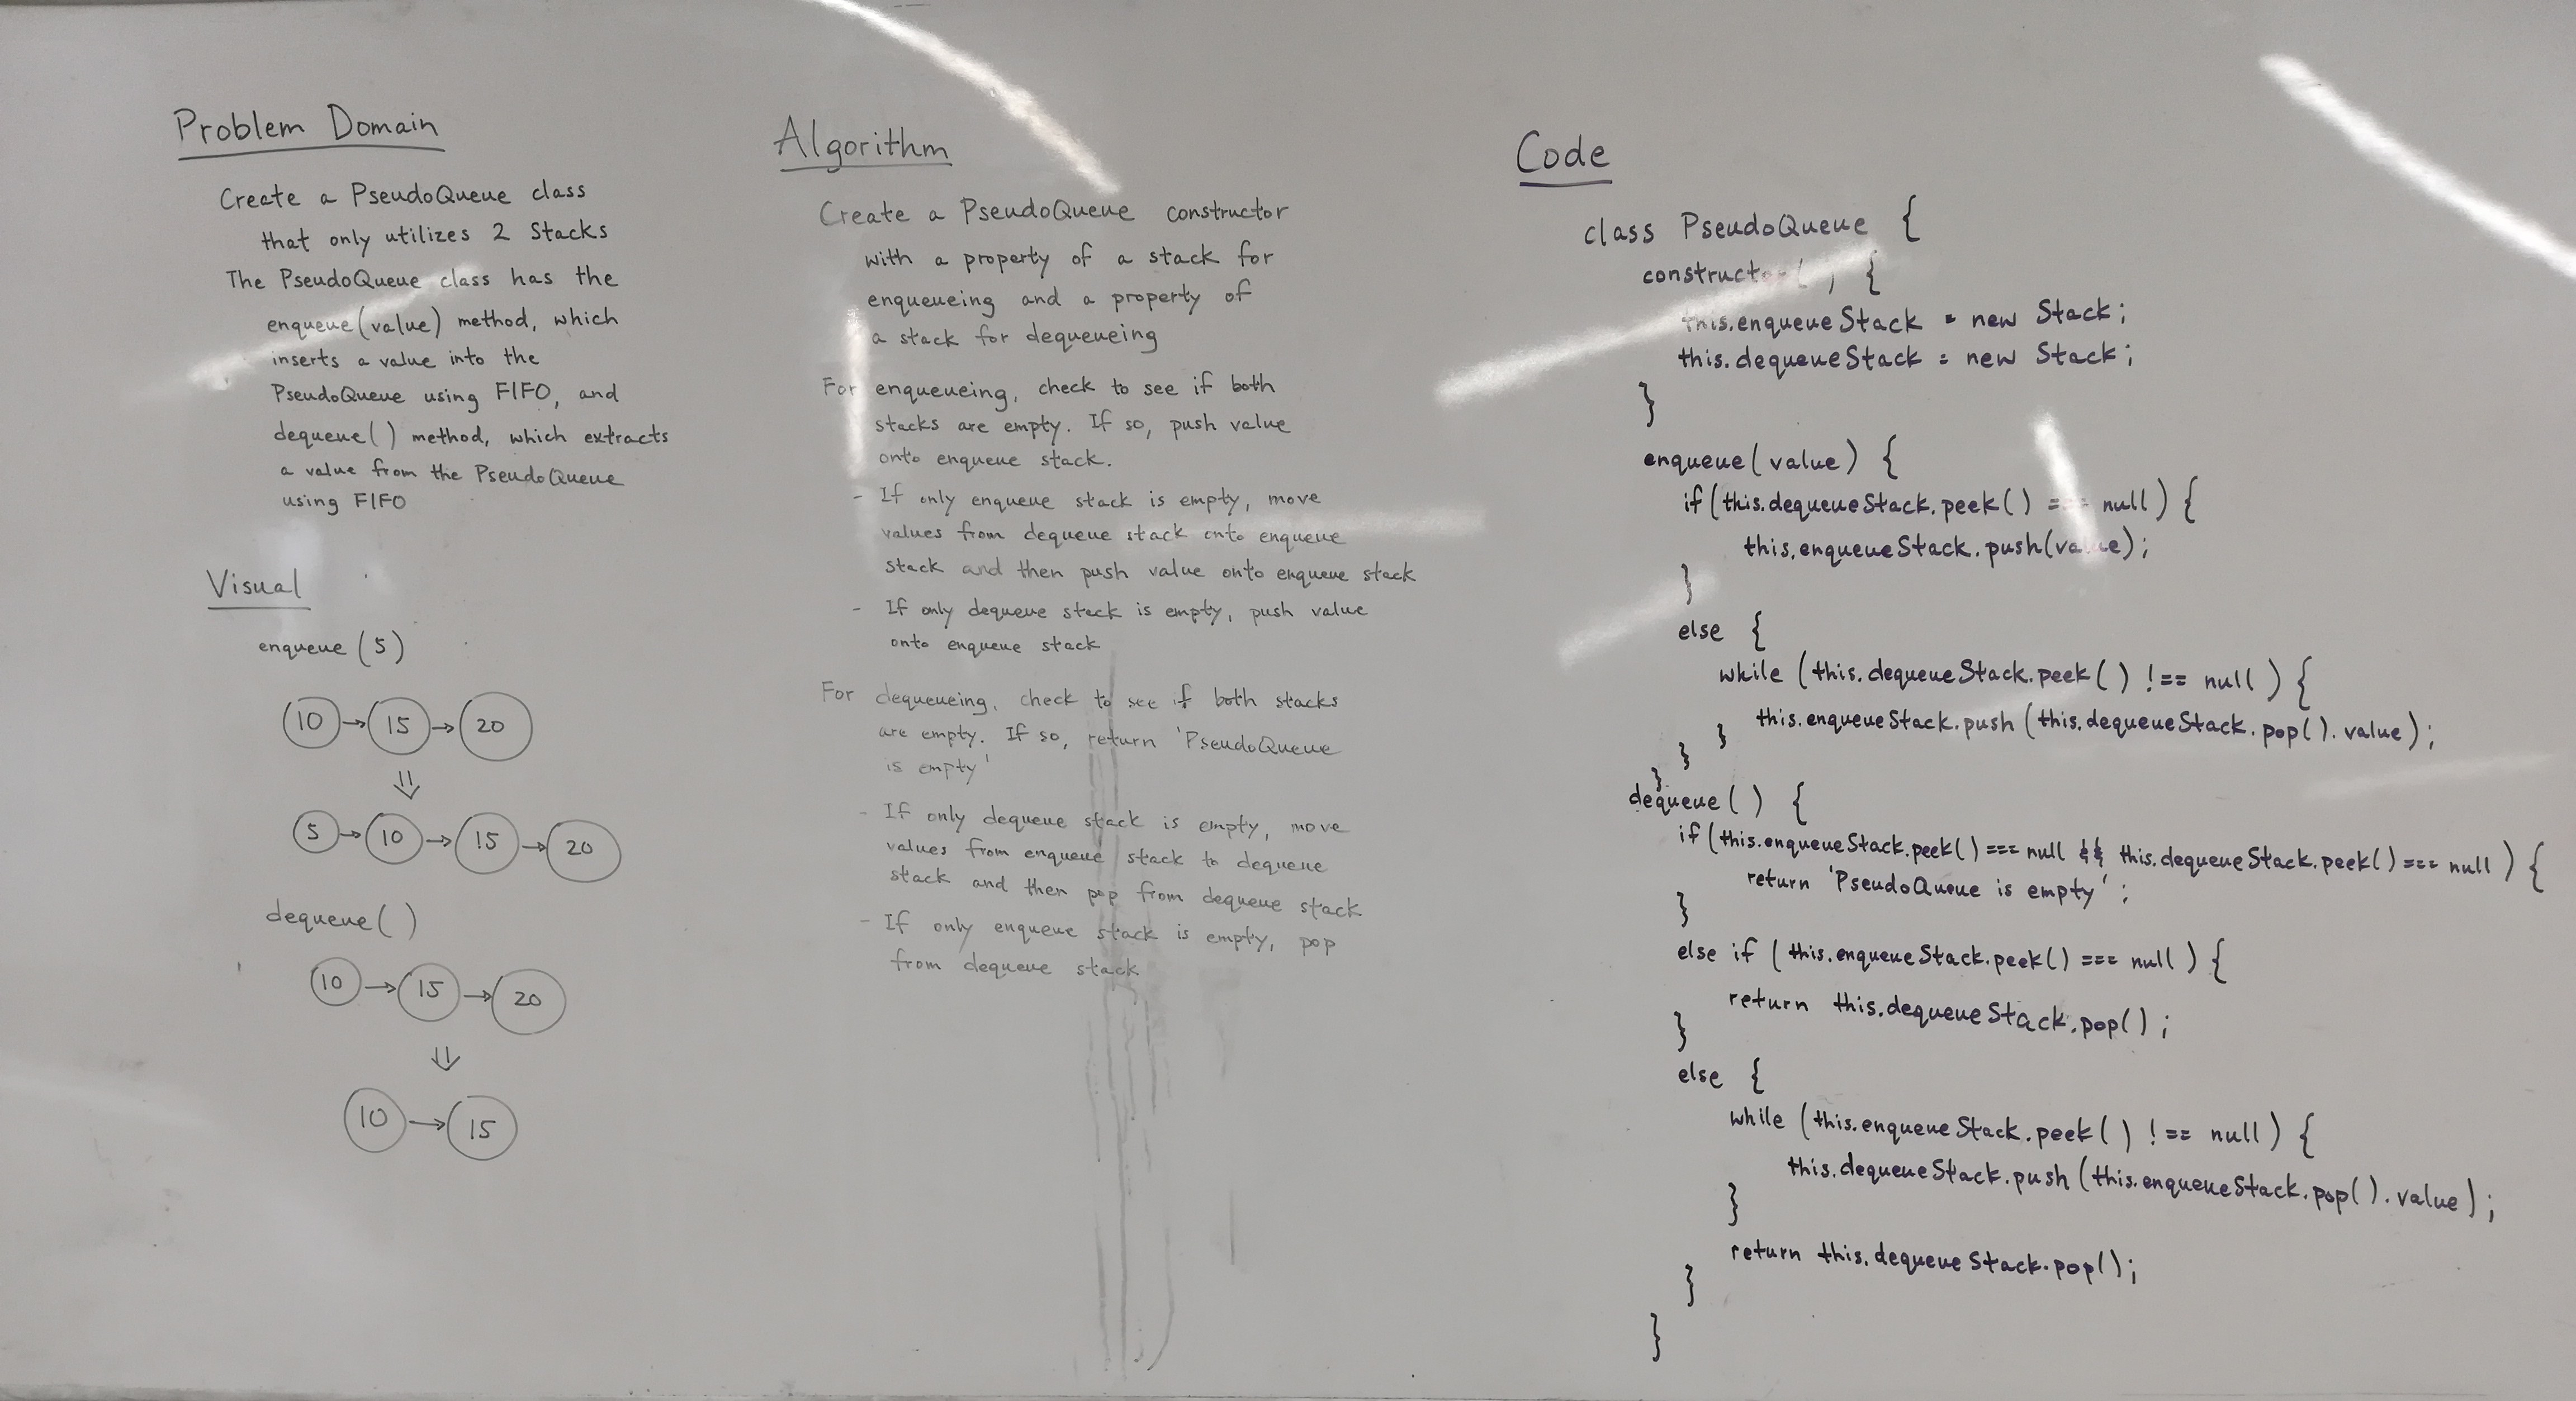 Problem Domain
Create a PseudoQueue class
that only utilizes 2 Stacks
The PseudoQueue class has the
enqueue(value) method, which
inserts a value into the
PseudoQueue using FIFO, and
dequeue() method, which extracts
a value from the PseudoQueue
using FIFO
Visual
enqueue (5)
10 → 15 → 20
⇓
5 → 10 → 15 → 20
dequeue()
10 → 15 → 20
⇓
10 → 15
Algorithm
Create a PseudoQueue constructor
with a property of a stack for
enqueueing and a property of
a stack for dequeueing
For enqueueing, check to see if both
stacks are empty. If so, push value
onto enqueue stack.
- If only enqueue stack is empty, move
values from dequeue stack onto enqueue
stack and then push value onto enqueue stack
- If only dequeue stack is empty, push value
onto enqueue stack
For dequeueing, check to see if both stacks
are empty. If so, return 'PseudoQueue
is empty'
- If only dequeue stack is empty, move
values from enqueue stack to dequeue
stack and then pop from dequeue stack
- If only enqueue stack is empty, pop
from dequeue stack
Code
class PseudoQueue {
constructor( ) {
this.enqueueStack = new Stack;
this.dequeueStack = new Stack;
}
enqueue(value) {
if (this.dequeueStack.peek() === null) {
this.enqueueStack.push(value);
}
else {
while (this.dequeueStack.peek() !== null) {
this.enqueueStack.push (this.dequeueStack.pop().value);
}
}
}
dequeue() {
if (this.enqueueStack.peek() === null && this.dequeueStack.peek() === null) {
return 'PseudoQueue is empty';
}
else if (this.enqueueStack.peek() === null) {
return this.dequeueStack.pop();
}
else {
while (this.enqueueStack.peek() !== null) {
this.dequeueStack.push (this.enqueueStack.pop().value);
}
return this.dequeueStack.pop();
}
}